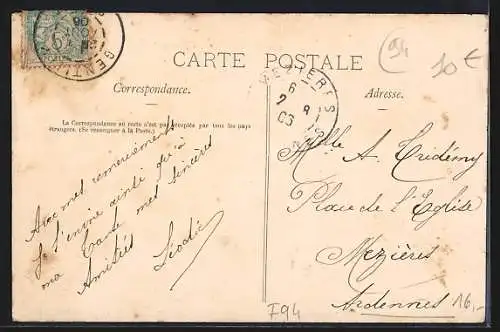 GENTILLY
5
94
10 €
CARTE POSTALE
MEZIERES
6
7 9
06
Correspondance.
Adresse.
La Correspondance au recto n'est pas acceptée par tous les pays
étrangers. (Se renseigner à la Poste.)
Avec mes remerciements
Je t'envoie ainsi qu'à
ma Tante mes sincères
Amitiés
Mlle A. Crédémy
Place de l'Eglise
Mezières
Ardennes
F94
16,-